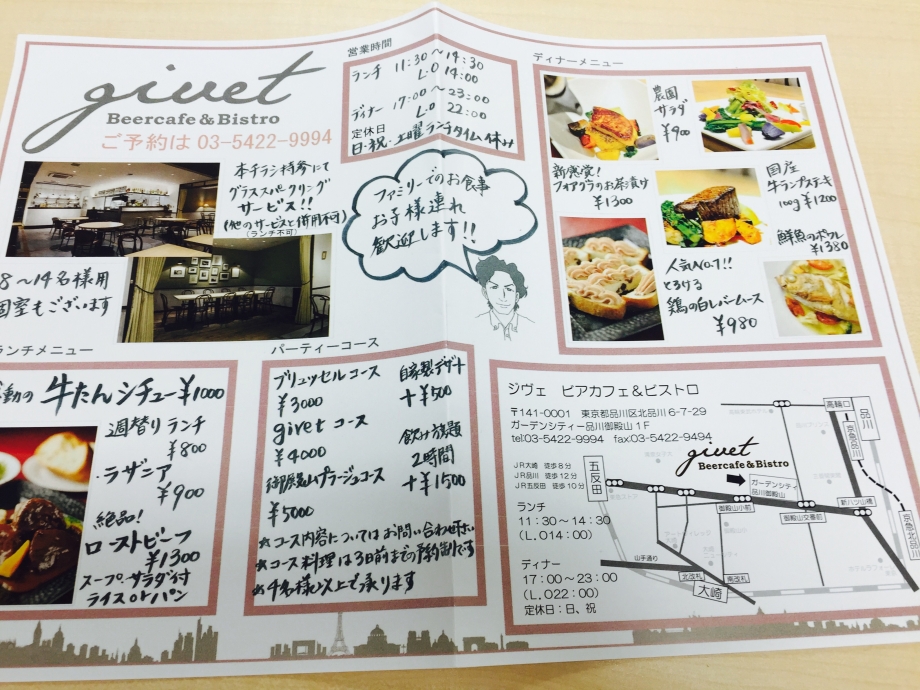 givet
Beercafe & Bistro
ご予約は 03-5422-9994
本チラシ持参にて
グラススパークリング
サービス!!
(他のサービスと併用不可)
(ランチ不可)
8〜14名様用
個室もございます
営業時間
ランチ 11:30〜14:30
L.O 14:00
ディナー 17:00〜23:00
L.O 22:00
定休日
日・祝・土曜ランチタイム休み
ファミリーでのお食事
お子様連れ
歓迎します!!
ディナーメニュー
農園
サラダ
¥900
新感覚!
フォアグラのお茶漬け
¥1300
国産
牛ランプステーキ
100g ¥1200
鮮魚のポワレ
¥1380
人気No.1!!
とろける
鶏の白レバームース
¥980
ランチメニュー
動の 牛たんシチュー ¥1000
週替り ランチ
¥800
・ラザニア
¥900
絶品!
ローストビーフ
¥1300
スープ、サラダ付
ライス or パン
パーティーコース
ブリュッセルコース
¥3000
givet コース
¥4000
プラージュコース
¥5000
自家製デザート
+¥500
飲み放題
2時間
+¥1500
☆コース内容についてはお問い合わせ下さい
☆コース料理は3日前までの予約制です
☆4名様以上で承ります
ジヴェ ビアカフェ&ビストロ
〒141-0001 東京都品川区北品川 6-7-29
ガーデンシティー品川御殿山 1F
tel:03-5422-9994 fax:03-5422-9494
JR大崎 徒歩8分
JR品川 徒歩12分
JR五反田 徒歩10分
ランチ
11:30〜14:30
(L.O14:00)
ディナー
17:00〜23:00
(L.O22:00)
定休日:日、祝
givet
Beercafe & Bistro
ガーデンシティ
品川御殿山
五反田
高輪口
品川
京急品川
新八ツ山橋
御殿山小前
御殿山交番前
京急北品川
山手通り
北改札
南改札
大崎